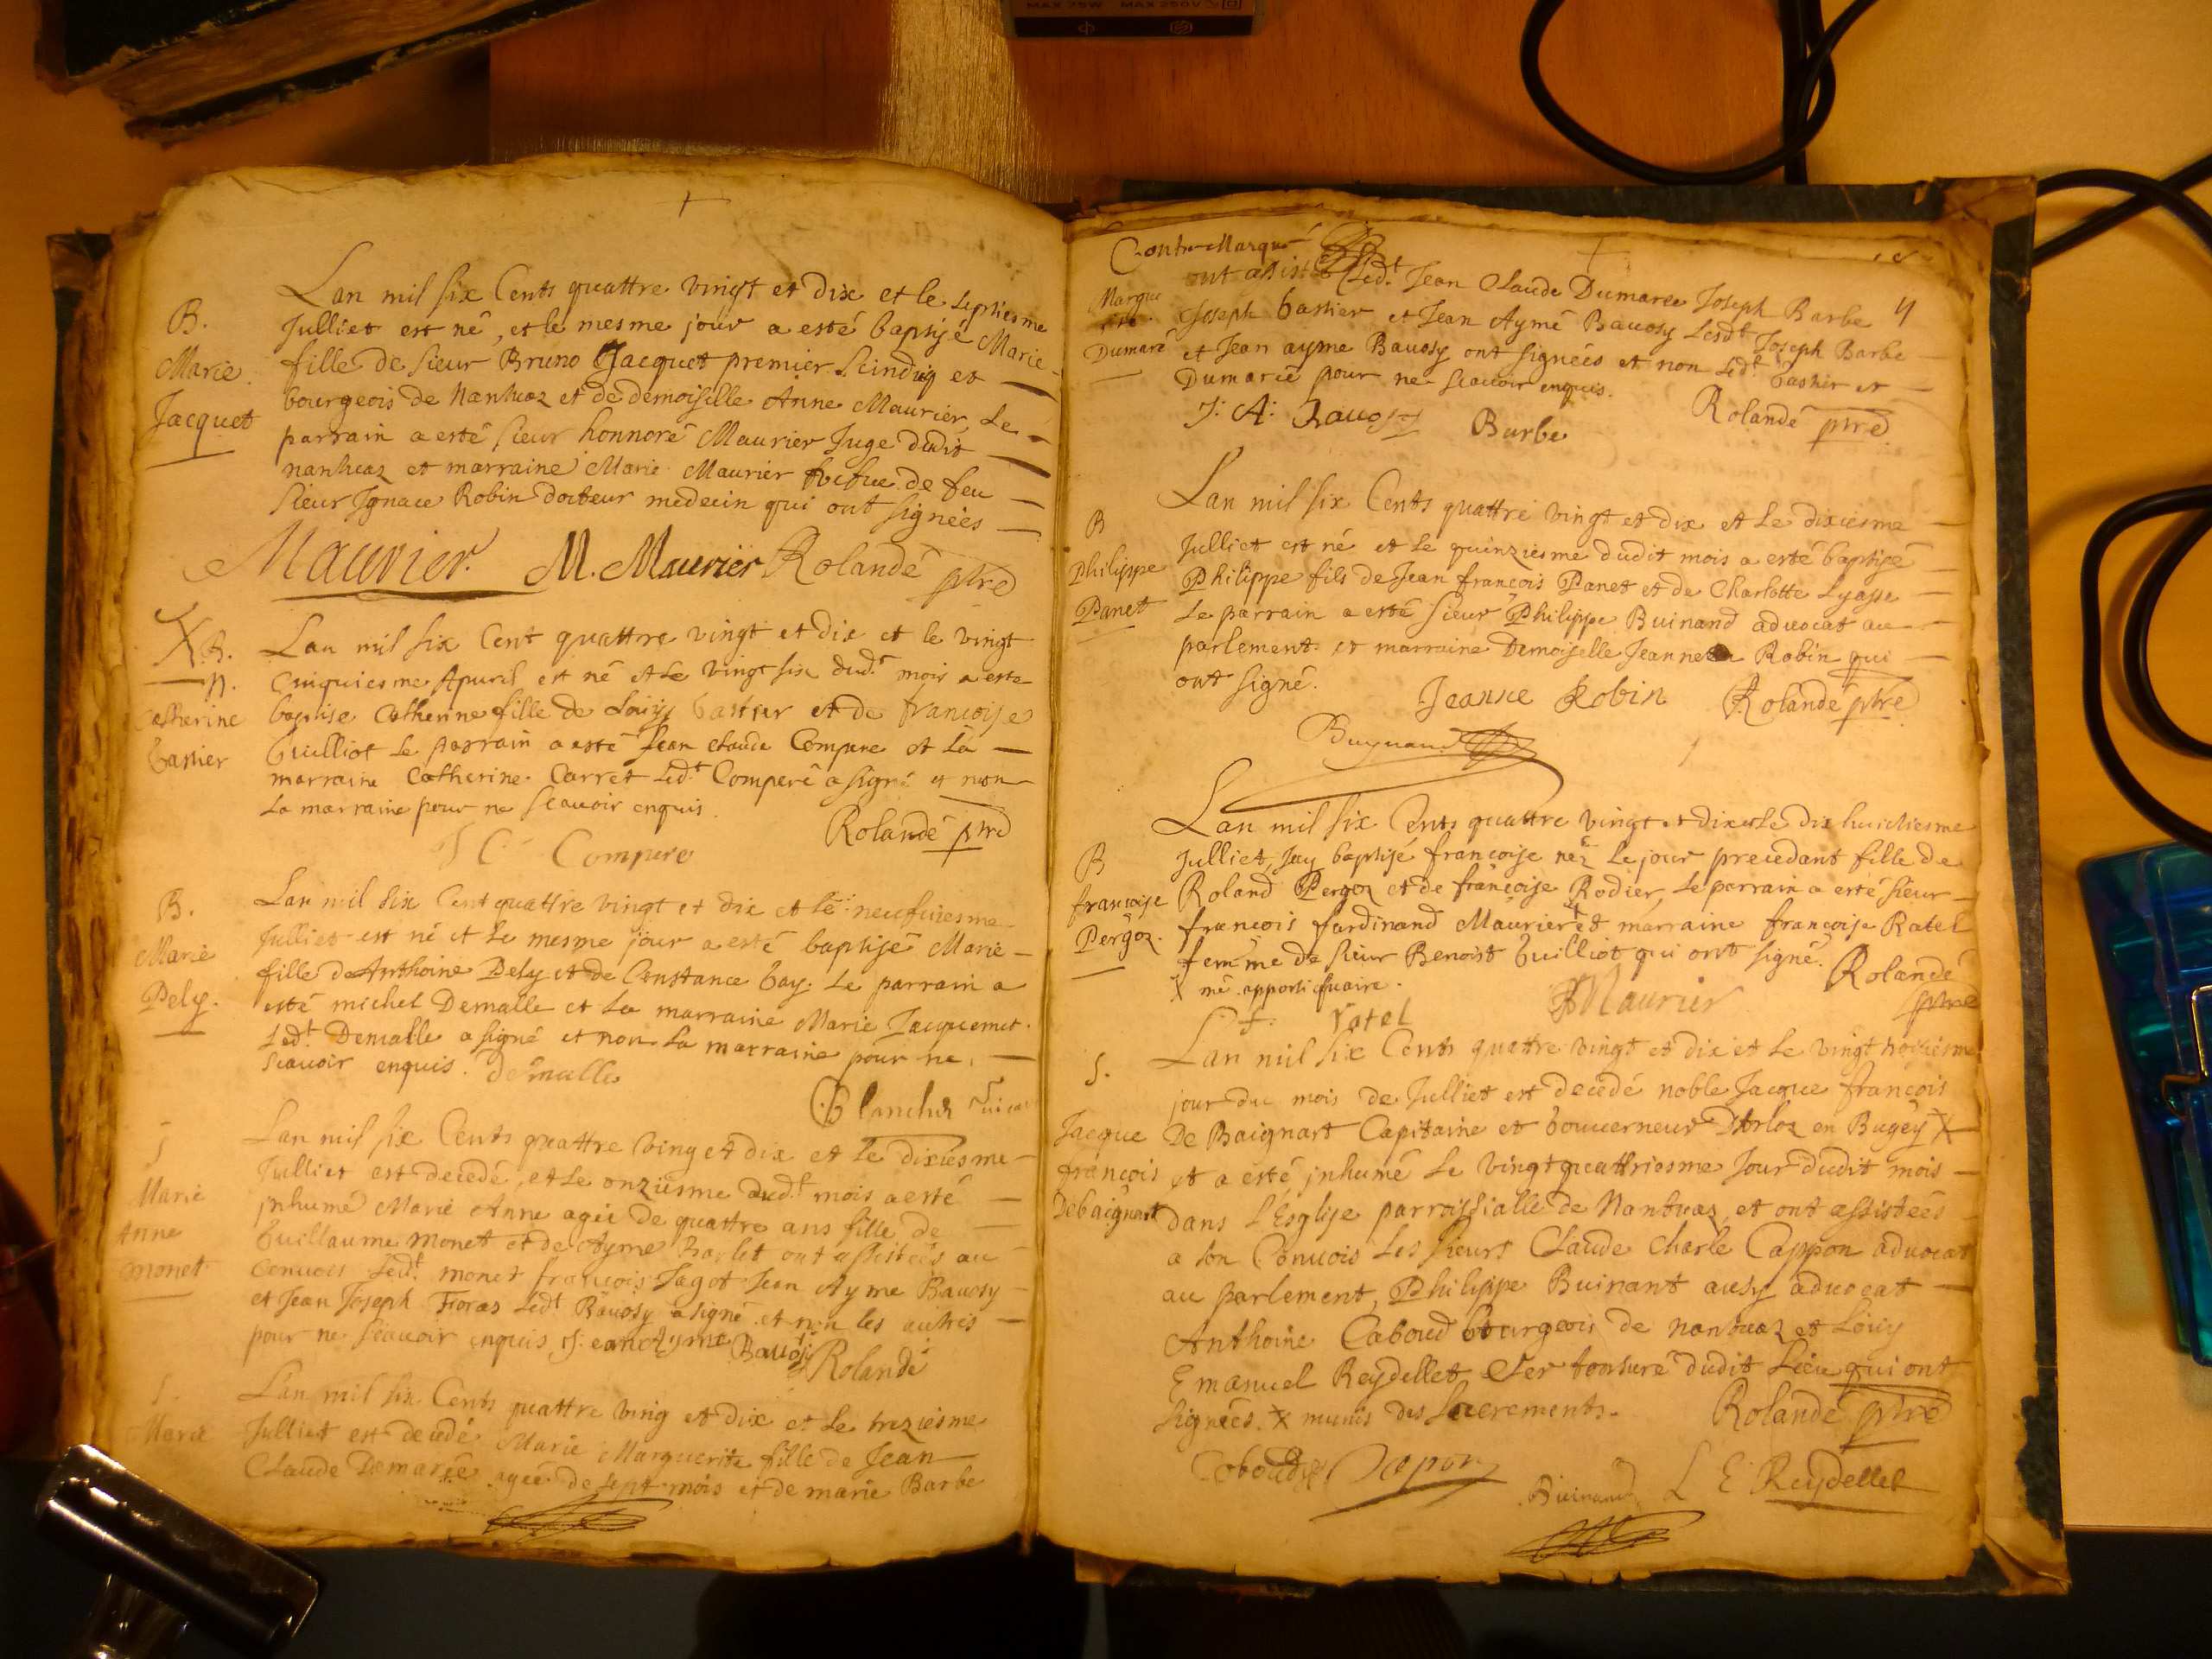 MAX 75W MAX 250V
Lan mil six Cents quattre vingt et dix et le septiesme
B. Julliet est né, et le mesme jour a esté baptisé Marie
Marie fille de sieur Bruno Jacquet premier scindiq et
Jacquet bourgeois de Nantuaz et de demoiselle Anne Maurier, Le
parrain a esté sieur honnoré Maurier Juge dudit
nantuaz et marraine Marie Maurier de feu
sieur Ignace Robin docteur medecin qui ont signées
Maurier. M. Maurier Rolandé ptre
X B. Lan mil six Cent quattre vingt et dix et le vingt
n. cinquiesme Apuril est né et le vingt six dud.t mois a esté
Catherine baptise Catherine fille de Louis et de francoise
Guilliot Le parrain a esté Jean claude Compere et La
marraine Catherine Carret Led.t Comperé a signé et non
La marraine pour ne scauoir enquis.
Rolandé ptre
J C Compere
B. Lan mil six Cent quattre vingt et dix et le neufuiesme
Marie Julliet est né et le mesme jour a esté baptisé Marie
Pely. fille de Anthoine Pely et de Constance Gay. Le parrain a
esté michel Demalle et La marraine Marie Jacquemet.
Led.t Demalle a signé et non La marraine pour ne
scauoir enquis. demalle
S Lan mil six Cents quattre ving et dix et le dixiesme
Marie Julliet est decedé, et le onziesme dud.t mois a esté
Anne jnhumé Marie Anne agée de quattre ans fille de
monet Guillaume monet et de Ayme ont assistées au
conuois Led.t monet francois Jagot Jean Ayme Bauosy
et Jean Joseph Led.t Bauosy a signé et non les autres
pour ne scauoir enquis. Jean Ayme Bauosy Rolandé
S. Lan mil six Cents quattre ving et dix et le treziesme
Marie Julliet est decedé Marie Marguerite fille de Jean
Claude Demarée agée de sept mois et de marie Barbe
Contre Marque
ont assisté Led.t Jean Claude Dumarée Joseph Barbe
Joseph bastier et Jean Aymé Bauosy Lesd.t Joseph Barbe
Dumaré et Jean ayme Bauosy ont signées et non Led.t bastier et
Dumarée pour ne scauoir enquis.
J. A. Bauosy Barbe Rolandé ptre
Lan mil six Cents quattre vingt et dix et le dixiesme
B Julliet est né et le quinziesme dudit mois a esté baptisé
Philippe Philippe fils de Jean francois Panet et de Charlotte Lyasse
Panet Le parrain a esté sieur Philippe Buinand aduocat au
parlement et marraine Demoiselle Jeanne Robin qui
ont signé.
Jeanne Robin Rolandé ptre
Buynand
Lan mil six Cents quattre vingt et dix et le dix huictiesme
B Julliet, Jay baptisé francoise née Le jour precedant fille de
francoise Roland Pergoz et de francoise Rodier, Le parrain a esté sieur
Pergoz. francois ferdinand Maurier et marraine francoise Ratel
femme de sieur Benoist Guilliot qui ont signé. Rolandé
X me appotiquaire. ptre
f. ratel Maurier
S. Lan mil six Cents quattre vingt et dix et le vingt troisiesme
jour du mois de Julliet est decedé noble Jacque francois
Jacque De Baignart Capitaine et Gouuerneur Darloz en Bugey X
francois et a esté jnhumé Le vingt quattriesme Jour dudit mois
Debaignart dans L'Esglise parroissialle de Nantuaz, et ont assistées
a son Conuois Les sieurs Claude Charle Cappon aduocat
au parlement, Philippe Buinant ausy aduocat
Anthoine Caboud bourgeois de nantuaz et Louis
Emanuel Reydellet Cler tonsuré dudit Lieu qui ont
signées. X munis des sacrements. Rolandé ptre
Buinand L E Reydellet